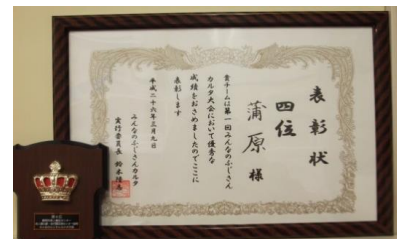 表彰状
四位
蒲原 様
貴チームは第一回みんなのふじさん
カルタ大会において優秀な
成績をおさめましたのでここに
表彰します
平成二十六年三月九日
みんなのふじさんカルタ
実行委員長 鈴木